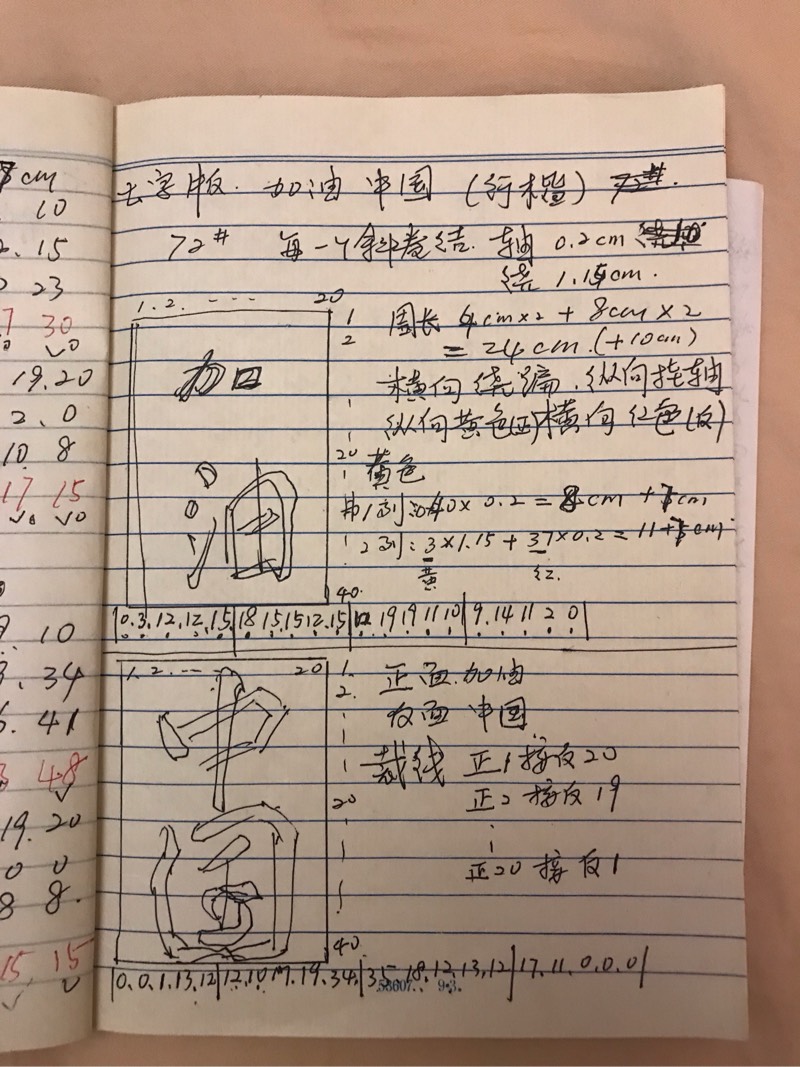 cm
10
2.15
23
7 30
19.20
2.0
10 8
17 15
10
3.34
6.41
3 48
19.20
0 0
8 8.
15 15
字版. 加油 中国 (行楷) 72#.
72# 每一个斜卷结. 轴 0.2cm
绕 1.15cm.
1.2. --- 20
1
2
20
40
加
油
周长 4cm×2 + 8cm×2
= 24cm.(+10cm)
横向绕编.纵向挂轴
纵向黄色(正)横向红色(反)
黄色
1列: 40×0.2 = 8cm +7cm
2列: 3×1.15 + 37×0.2 = 11+7cm
黄 红.
0.3.12.12.15|18 15.15 12.15|12 19 19 11 10|9.14 11 2 0|
1.2.--- 20
1.
2.
20
40
中
国
正面.加油
反面 中国
裁线 正1接反20
正2 接反19
正20 接反1
|0.0.1.13.12|12.10 17.19.34.|35.18.12.13.12|17.11.0.0.0|
58607. 9.3.